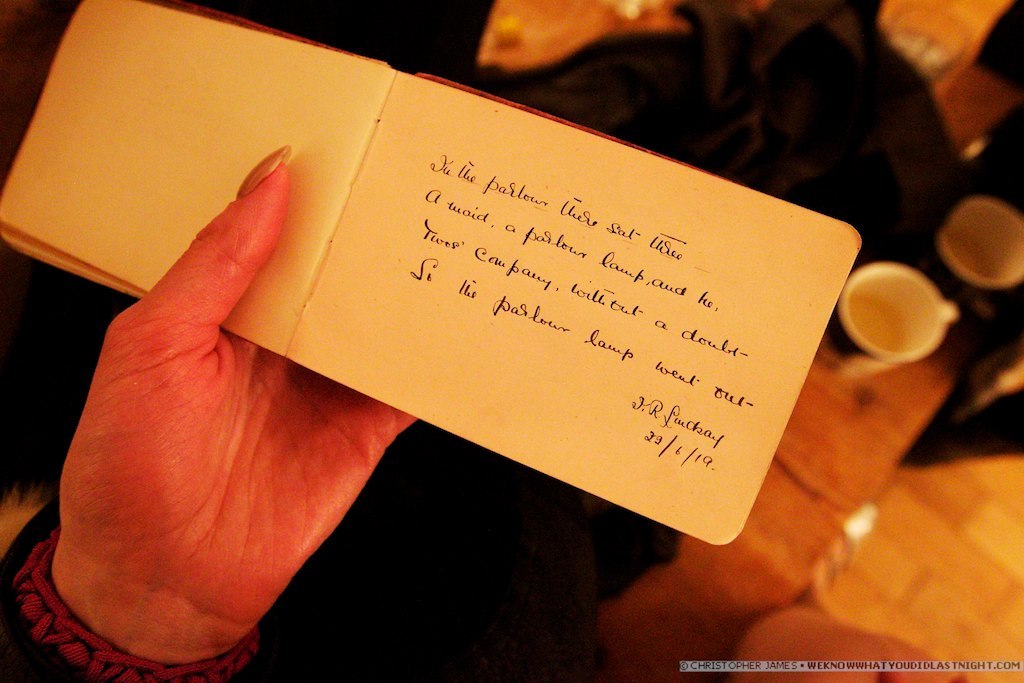 In the parlour there sat three
A maid, a parlour lamp, and he,
Twos' Company, without a doubt
So the parlour lamp went out
J.R. Lindsay
29/6/19.
© CHRISTOPHER JAMES • WEKNOWWHATYOUDIDLASTNIGHT.COM